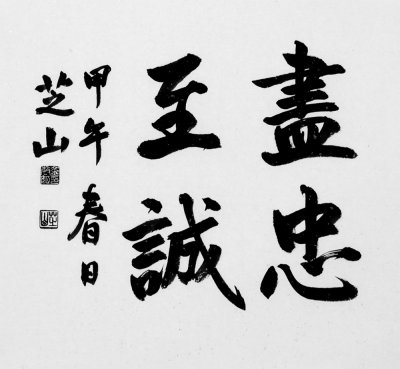 盡忠
至誠
甲午春日
芝山